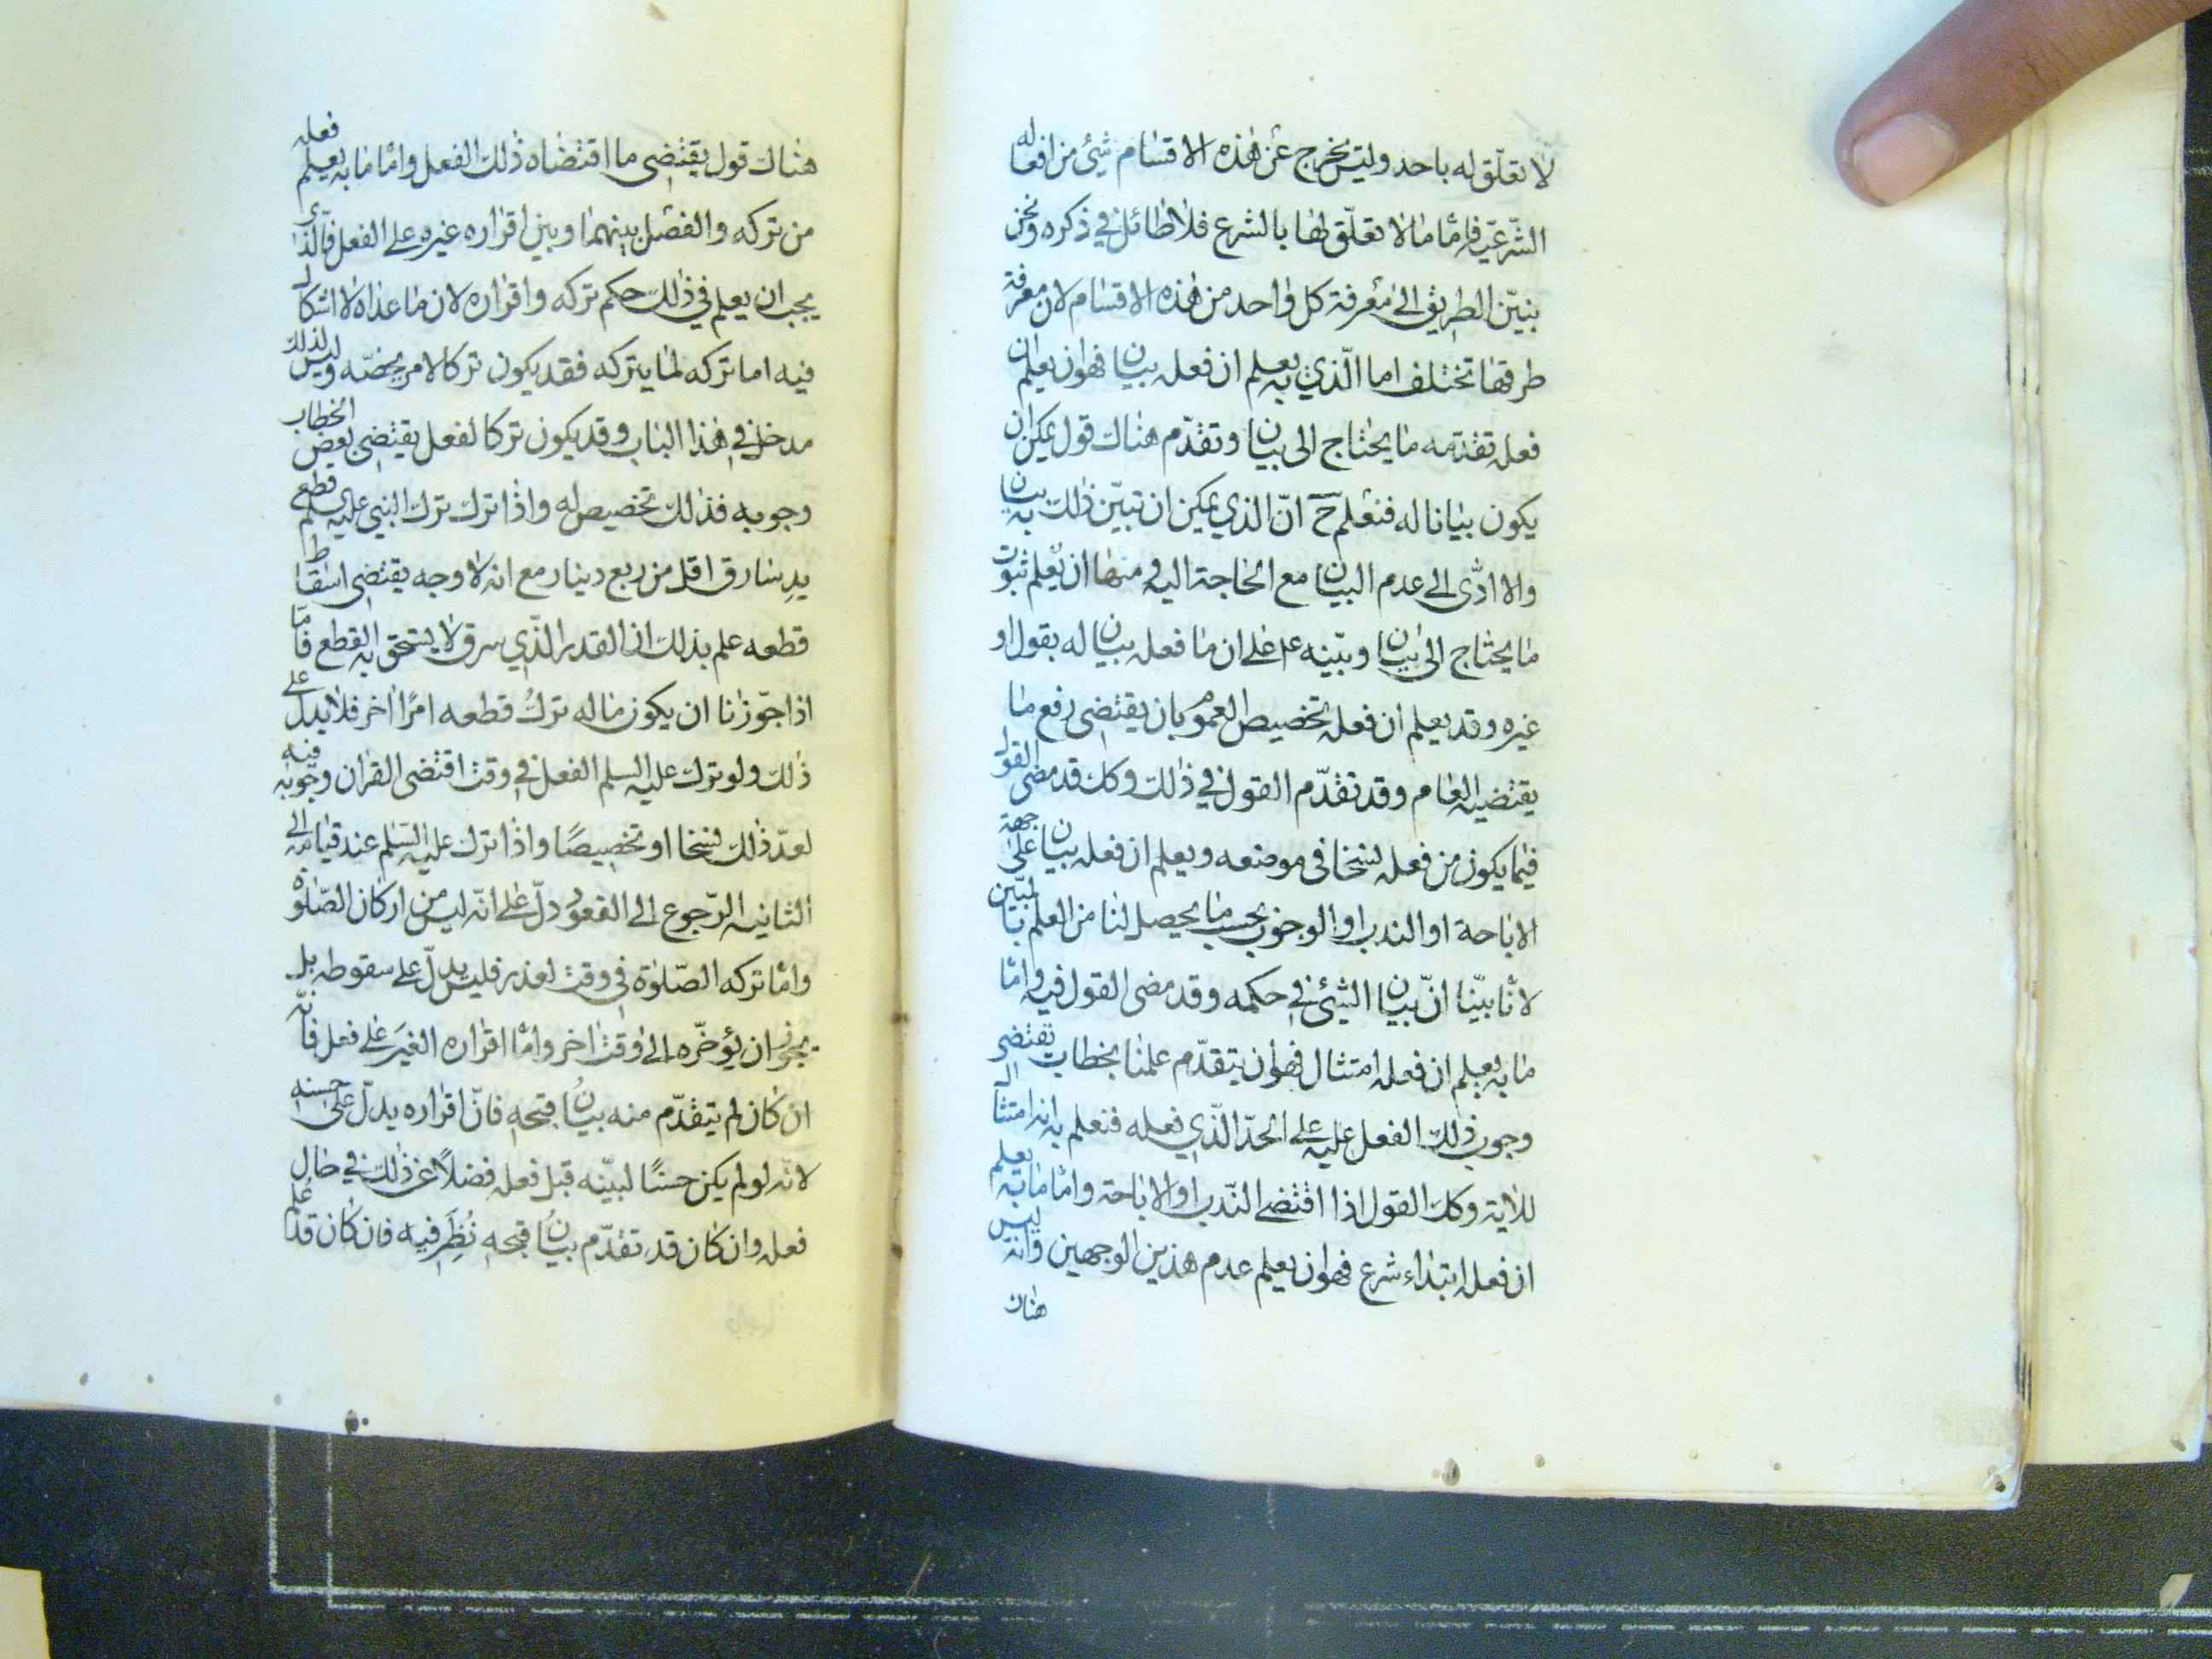 لا تعلّق له باحد وليس يخرج عن هذه الاقسام شئ من افعاله
الشّرعيّة فامّا ما لا تعلّق لها بالشرع فلا طائل في ذكره ونحن
نبيّن الطريق الى معرفة كل واحد من هذه الاقسام لان معرفة
طرقها تختلف اما الّذي به يعلم ان فعله بيان فهو ان يعلم ان
فعله تقدّمه ما يحتاج الى بيان وتقدّم هناك قول يمكن ان
يكون بيانا له فنعلم ح انّ الذي يمكن ان تبيّن ذلك به بيان
والا ادّى الى عدم البيان مع الحاجة اليه ومنها ان يعلم ثبوت
ما يحتاج الى بيان وبيّنه عم على ان ما فعله بيان له بقول او
غيره وقد يعلم ان فعله تخصيص العموم بان يقتضى رفع ما
يقتضيه العام وقد تقدّم القول في ذلك وكك قد مضى القول
فيما يكون من فعله نسخا فى موضعه ويعلم ان فعله بيان على جهة
الاباحة او الندب او الوجوب بحسب ما يحصل لنا من العلم بالمبيّن
لانّا بيّنا انّ بيان الشئ في حكمه وقد مضى القول فيه وامّا
ما به يعلم ان فعله امتثال فهو ان يتقدّم علمنا بخطاب يقتضى
وجوب ذلك الفعل عليه على الحدّ الّذي فعله فنعلم به انه امتثال
للاية وكك القول اذا اقتضى النّدب او الاباحة وامّا ما به يعلم
ان فعله ابتداء شرع فهو ان يعلم عدم هذين الوجهين وانه ليس
هناك
هناك قول يقتضى ما اقتضاه ذلك الفعل وامّا ما به يعلم فعله
من تركه والفصل بينهما وبين اقراره غيره على الفعل فالّذي
يجب ان يعلم في ذلك حكم تركه واقراره لان ما عداه لا اشكال
فيه اما تركه لما يتركه فقد يكون تركا لامر يخصّه وليس لذلك
مدخل في هذا الباب وقد يكون تركا لفعل يقتضى بعض الخطاب
وجوبه فذلك تخصيص له واذا ترك النبي عليه السلم قطع
يد سارق اقل من ربع دينار مع انه لا وجه يقتضى اسقاط
قطعه علم بذلك ان القدر الّذي سرق لا يستحق به القطع فامّا
اذا جوّزنا ان يكون ما له ترك قطعه امرًا اخر فلا يدل على
ذلك ولو ترك عليه السلم الفعل في وقت اقتضى القران وجوبه فيه
لعدّ ذلك نسخا او تخصيصًا واذا ترك عليه السّلم عند قيامه الى
الثانيه الرّجوع الى القعود دلّ على انّه ليس من اركان الصّلوة
وامّا تركه الصّلوة فى وقت لعذر فليس يدلّ على سقوطه بل
يجوز ان يؤخّره الى وقت اخر وامّا اقراره الغير على فعل فانّه
ان كان لم يتقدّم منه بيان قبحه فانّ اقراره يدلّ على حسنه
لانّه لو لم يكن حسنًا لبيّنه قبل فعله فضلاً عن ذلك في حال
فعله وان كان قد تقدّم بيان قبحه نُظِرَ فيه فان كان قد علم